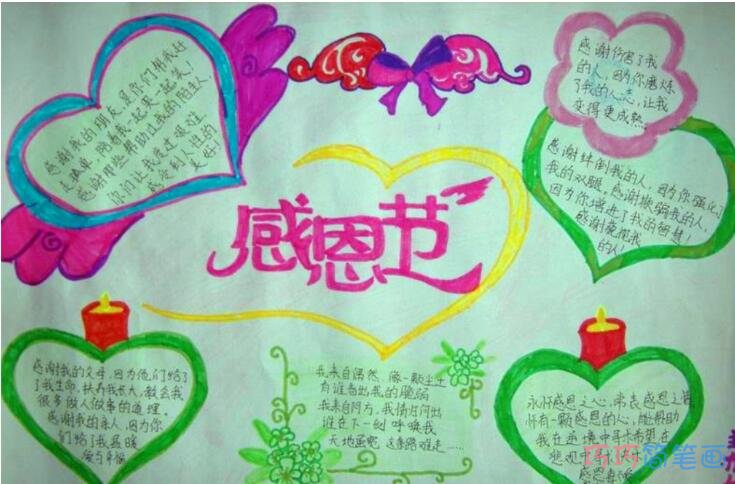 感谢我的朋友是你们帮我赶
走孤单,陪着我一起哭一起笑!
感谢那些帮助过我的陌生人,
你们让我度过艰难
感觉到人性的
美好!
感谢伤害了我
的人,因为你磨炼
了我的心志,让我
变得更成熟。
感恩节
感谢绊倒我的人,因为你强化了
我的双腿,感谢欺骗我的人,
因为你增进了我的智慧!
感谢藐视我
的人!
感谢我的父母,因为他们给了
了我生命,抚养我长大,教会我
很多做人做事的道理。
感谢我的亲人,因为你
们给了我温暖
爱与幸福
我来自偶然,像一颗尘土
有谁看出我的脆弱
我来自何方,我情归何处
谁在下一刻呼唤我
天地虽宽 这条路难走……
永怀感恩之心,常表感恩之情
怀有一颗感恩的心,能帮助
我在逆境中寻求希望在
悲观中寻
巧巧简笔画